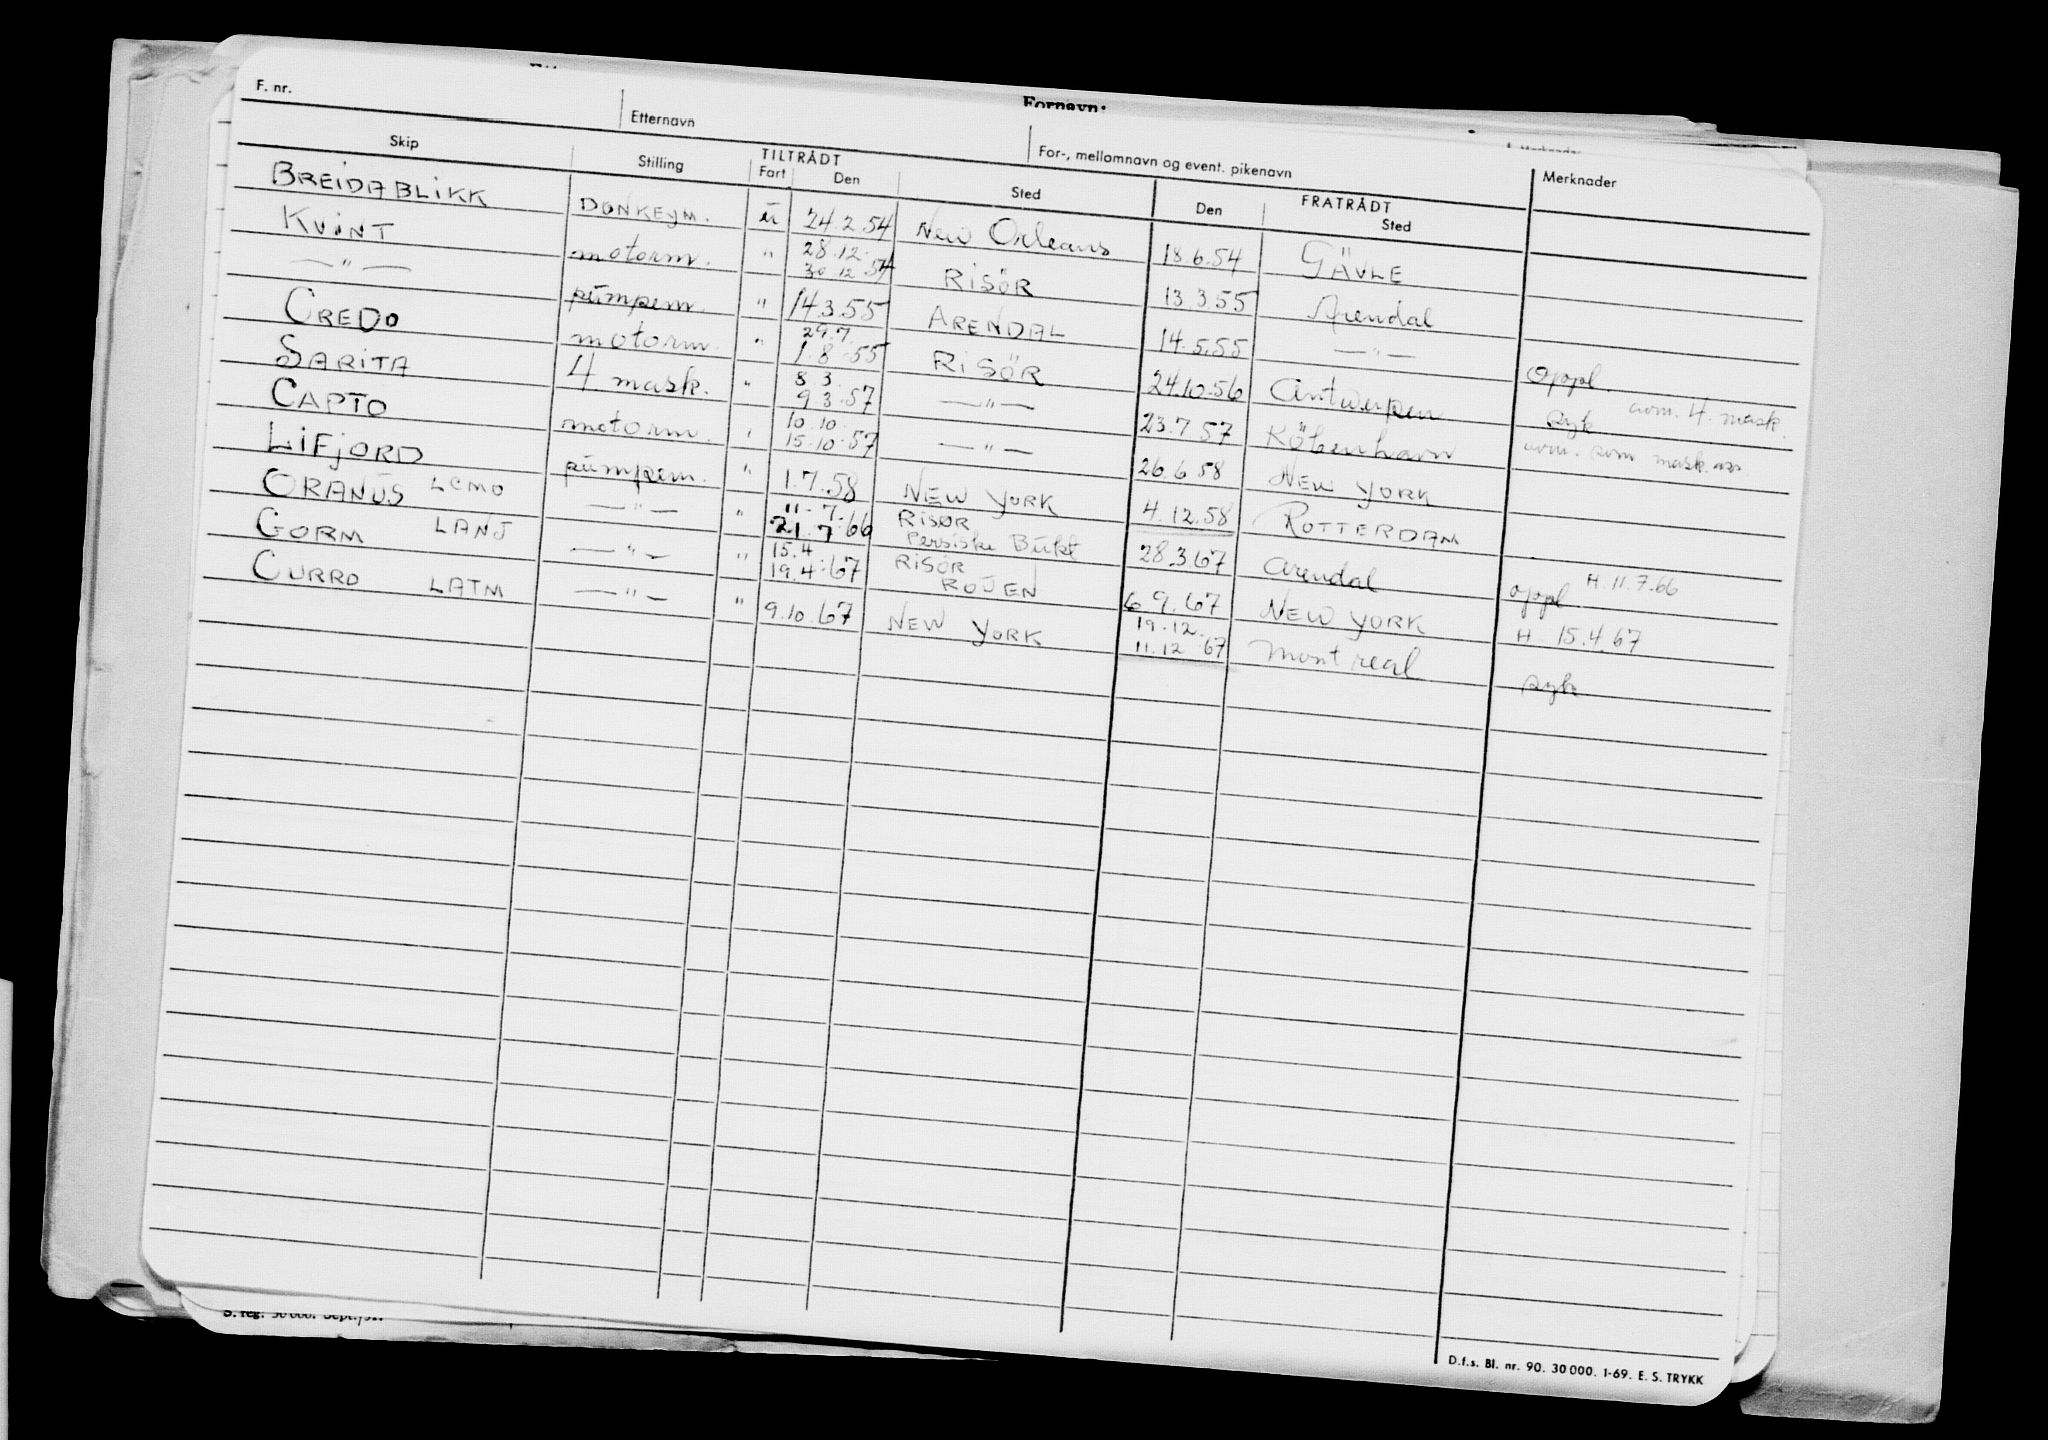 Fornavn:
F. nr.
Etternavn
For-, mellomnavn og event. pikenavn
Merknader
Skip Stilling TILTRÅDT Fart Den Sted FRATRÅDT Den Sted
BREIDABLIKK DONKEYM. u 24.2.54 New Orleans 18.6.54 GÄVLE
KVINT motorm. " 28.12. 30.12.54 RISÖR 13.3.55 Arendal
—"— pumpem. " 14.3.55 ARENDAL 14.5.55 —"— Oppl.
CREDO motorm. " 29.7. 1.8.55 RISÖR 24.10.56 Antwerpen avm. 4. mask. syk
SARITA 4 mask. " 8.3. 9.3.57 —"— 23.7.57 Köbenhavn avm. som mask.
CAPTO motorm. " 10.10. 15.10.57 —"— 26.6.58 NEW YORK
LIFJORD pumpem. " 1.7.58 NEW YORK 4.12.58 ROTTERDAM
ORANUS LCMO —"— " 11.7. 21.7.66 RISØR Persiske Bukt 28.3.67 Arendal oppl. H. 11.7.66
GORM LANJ —"— " 15.4. 19.4.67 RISÖR 6.9.67 NEW YORK H. 15.4.67
CURRO LATM —"— " 9.10.67 NEW YORK 19.12. 11.12.67 Montreal syk
S. reg. 30 000. Sept.
D.f.s. Bl. nr. 90. 30 000. 1-69. E. S. TRYKK